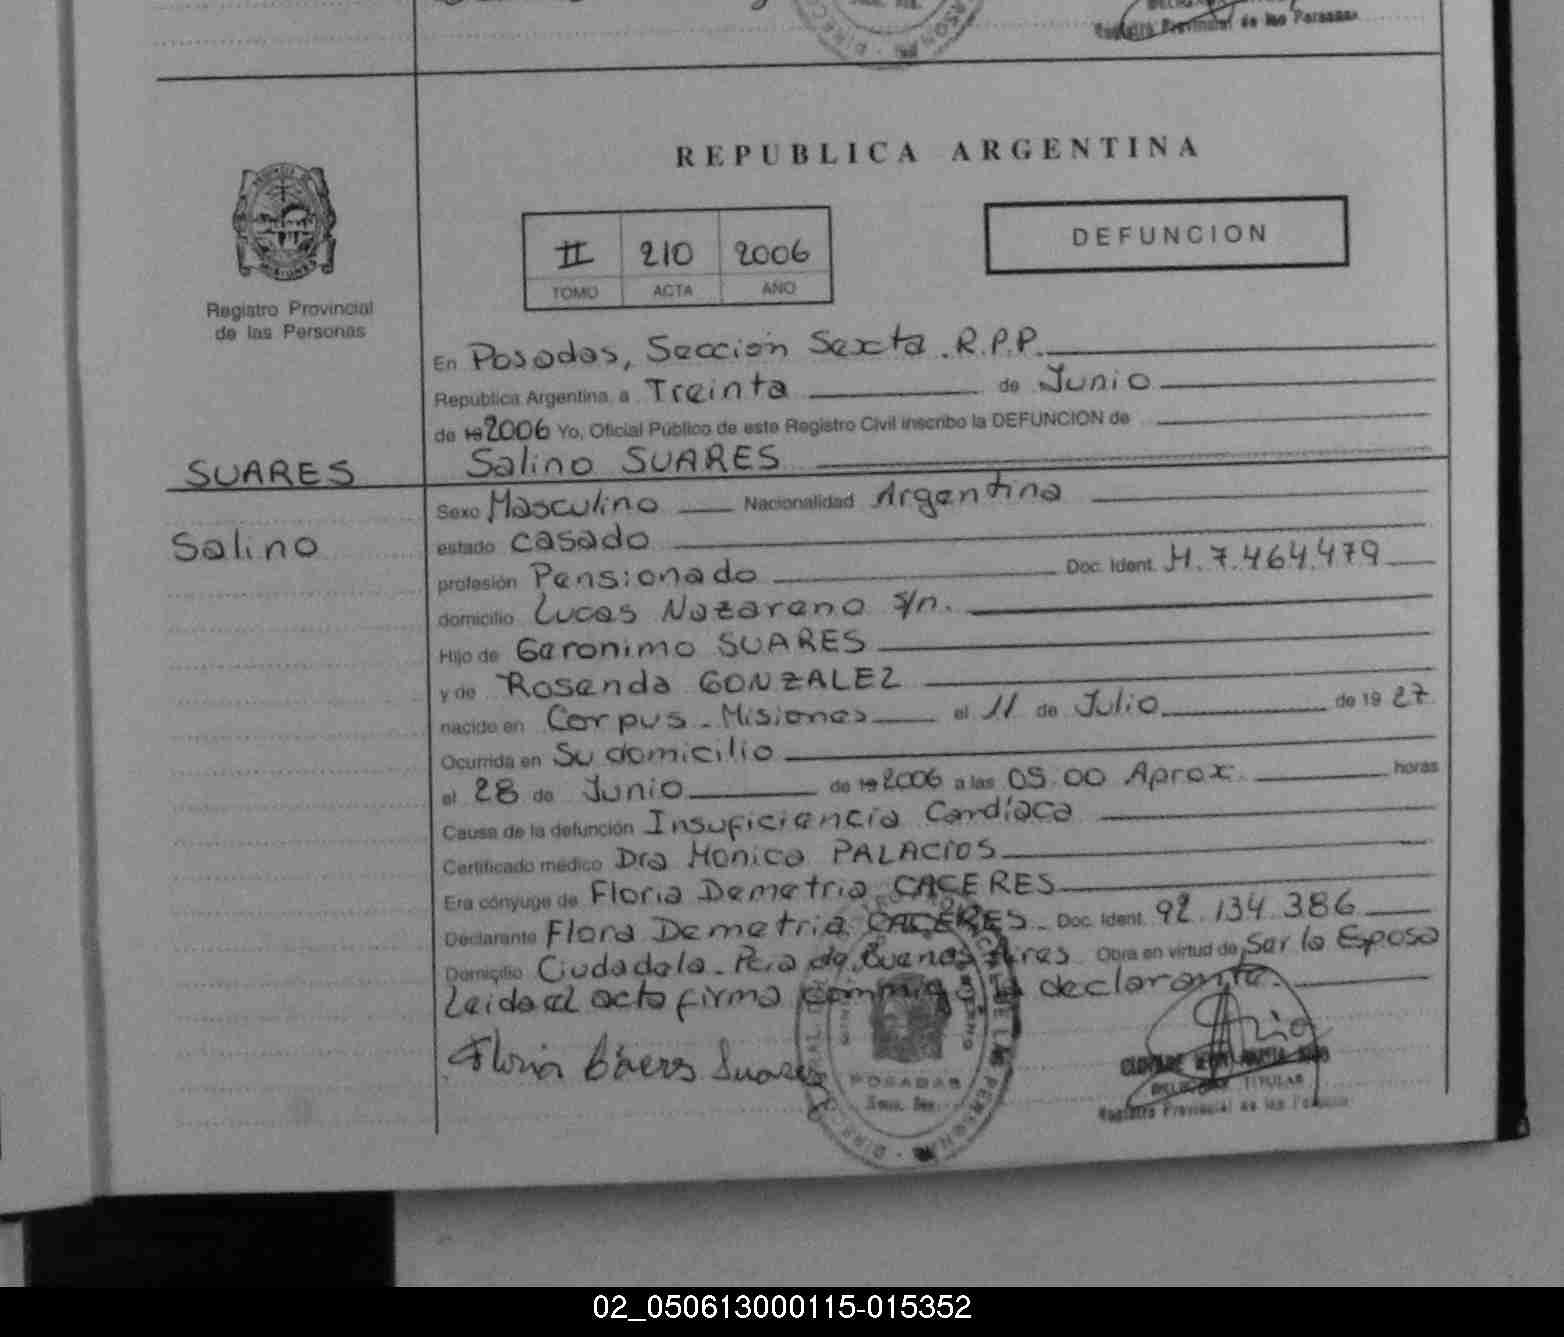 Registro Provincial de las Personas
REPUBLICA ARGENTINA
MISIONES
Registro Provincial
de las Personas
II 210 2006
TOMO ACTA AÑO
DEFUNCION
En Posadas, Sección Sexta. R.P.P.
Republica Argentina, a Treinta de Junio
de 19 2006 Yo, Oficial Público de este Registro Civil inscribo la DEFUNCION de
SUARES Salino SUARES
Sexo Masculino Nacionalidad Argentina
Salino
estado casado
profesión Pensionado Doc. Ident. M. 7.464.479
domicilio Lucas Nazareno s/n.
Hijo de Geronimo SUARES
y de Rosenda GONZALEZ
nacido en Corpus - Misiones el 11 de Julio de 19 27.
Ocurrida en Su domicilio
el 28 de Junio de 19 2006 a las 05:00 Aprox. horas
Causa de la defunción Insuficiencia Cardíaca
Certificado médico Dra Monica PALACIOS
Era cónyuge de Floria Demetria CACERES
Declarante Flora Demetria CACERES Doc. Ident. 92.134.386
Domicilio Ciudadela - Pcia de Buenos Aires Obra en virtud de Ser la Esposa
Leida el acta firma conmigo la declarante.
Suares
POSADAS
Secc. Sex.
TITULAR
Registro Provincial de las Personas
02_050613000115-015352